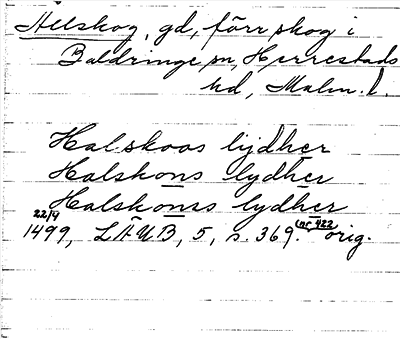 Allskog, gd, förr skog i
Baldringe sn, Herrestads
hd, Malm. l.
Halskoos lijdher
Halskons lydher
Halskonss lydher
22/9
1499, LÄUB, 5, s. 369. (nr 422 orig.